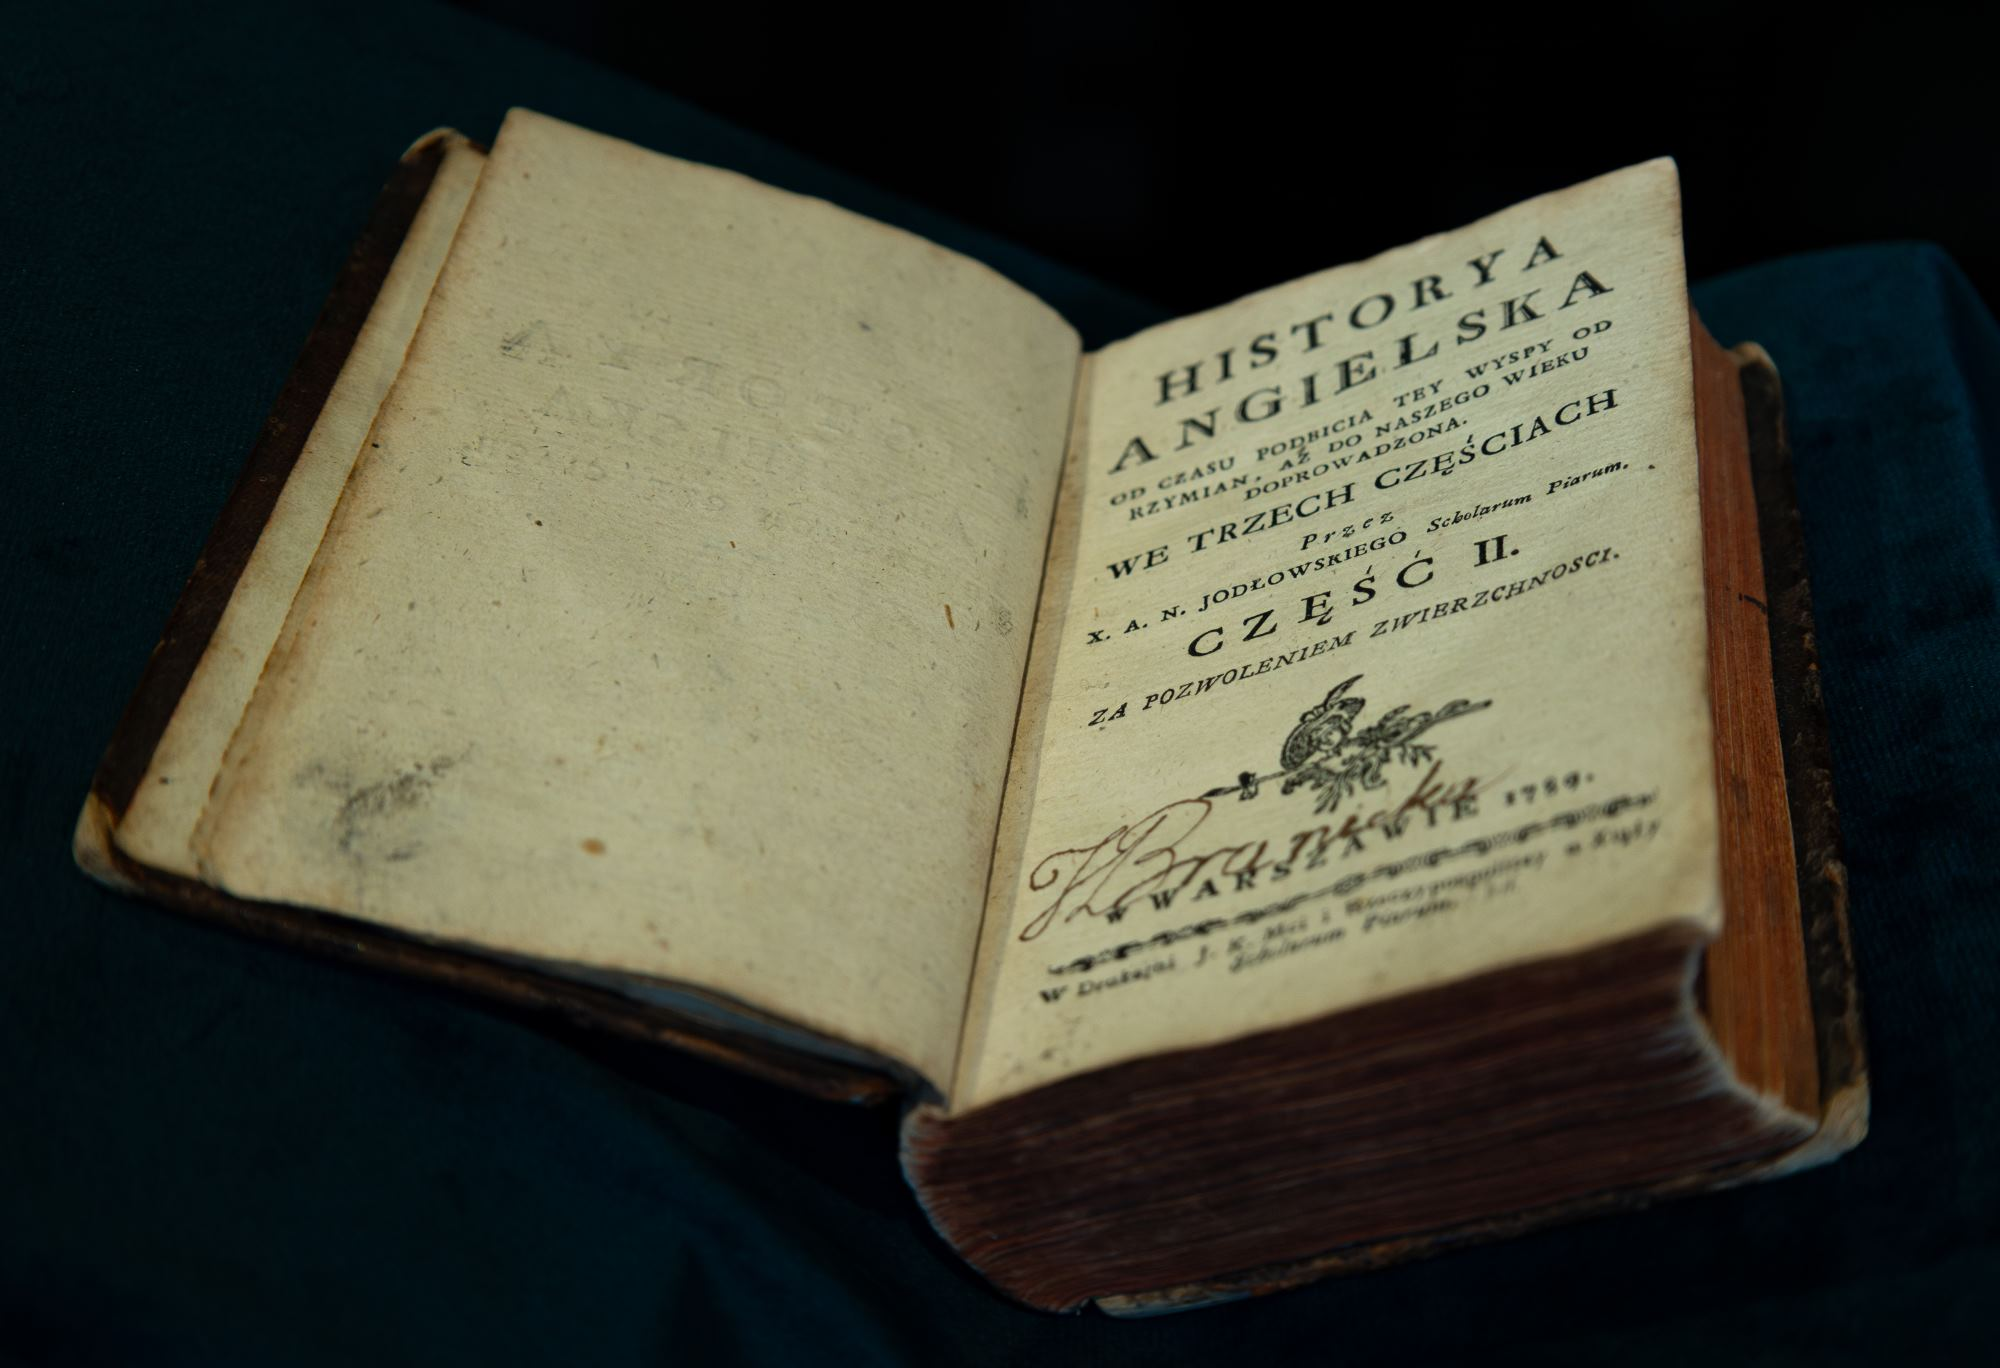 HISTORYA
ANGIELSKA
OD CZASU PODBICIA TEY WYSPY OD
RZYMIAN, AŻ DO NASZEGO WIEKU
DOPROWADZONA.
WE TRZECH CZĘŚCIACH
Przez
X. A. N. JODŁOWSKIEGO Scholarum Piarum.
CZĘŚĆ II.
ZA POZWOLENIEM ZWIERZCHNOSCI.
Branicka
W WARSZAWIE 1789.
W Drukarni J. K. Mci i Rzeczypospolitey u Xięży
Scholarum Piarum.